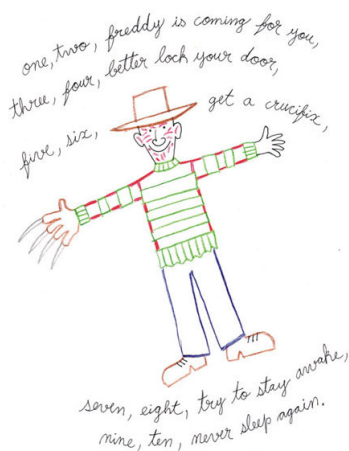 one, two, freddy is coming for you,
three, four, better lock your door,
five, six, get a crucifix,
seven, eight, try to stay awake,
nine, ten, never sleep again.